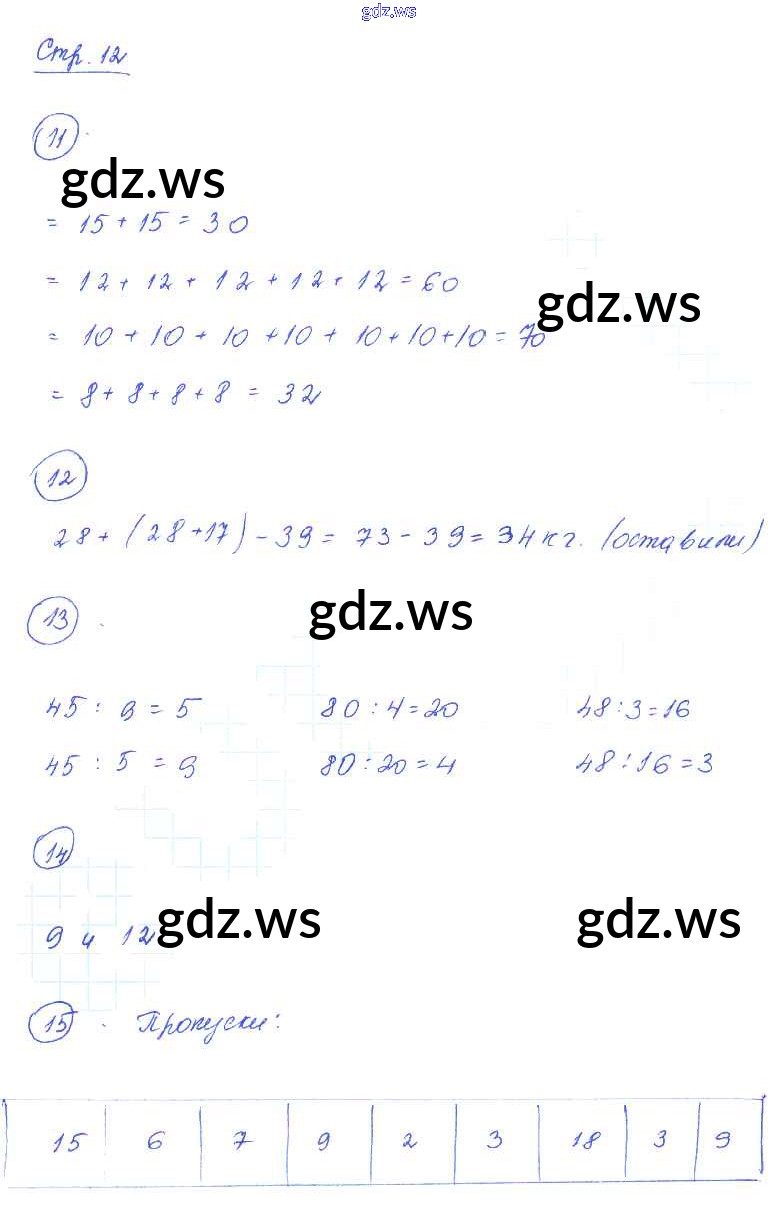 gdz.ws
Стр. 12
11
gdz.ws
= 15 + 15 = 30
= 12 + 12 + 12 + 12 + 12 = 60
gdz.ws
= 10 + 10 + 10 + 10 + 10 + 10 + 10 = 70
= 8 + 8 + 8 + 8 = 32
12
28 + (28 + 17) - 39 = 73 - 39 = 34 кг. (оставили)
13
gdz.ws
45 : 9 = 5 80 : 4 = 20 48 : 3 = 16
45 : 5 = 9 80 : 20 = 4 48 : 16 = 3
14
gdz.ws gdz.ws
9 и 12
15 . Пропуски:
15 6 7 9 2 3 18 3 9